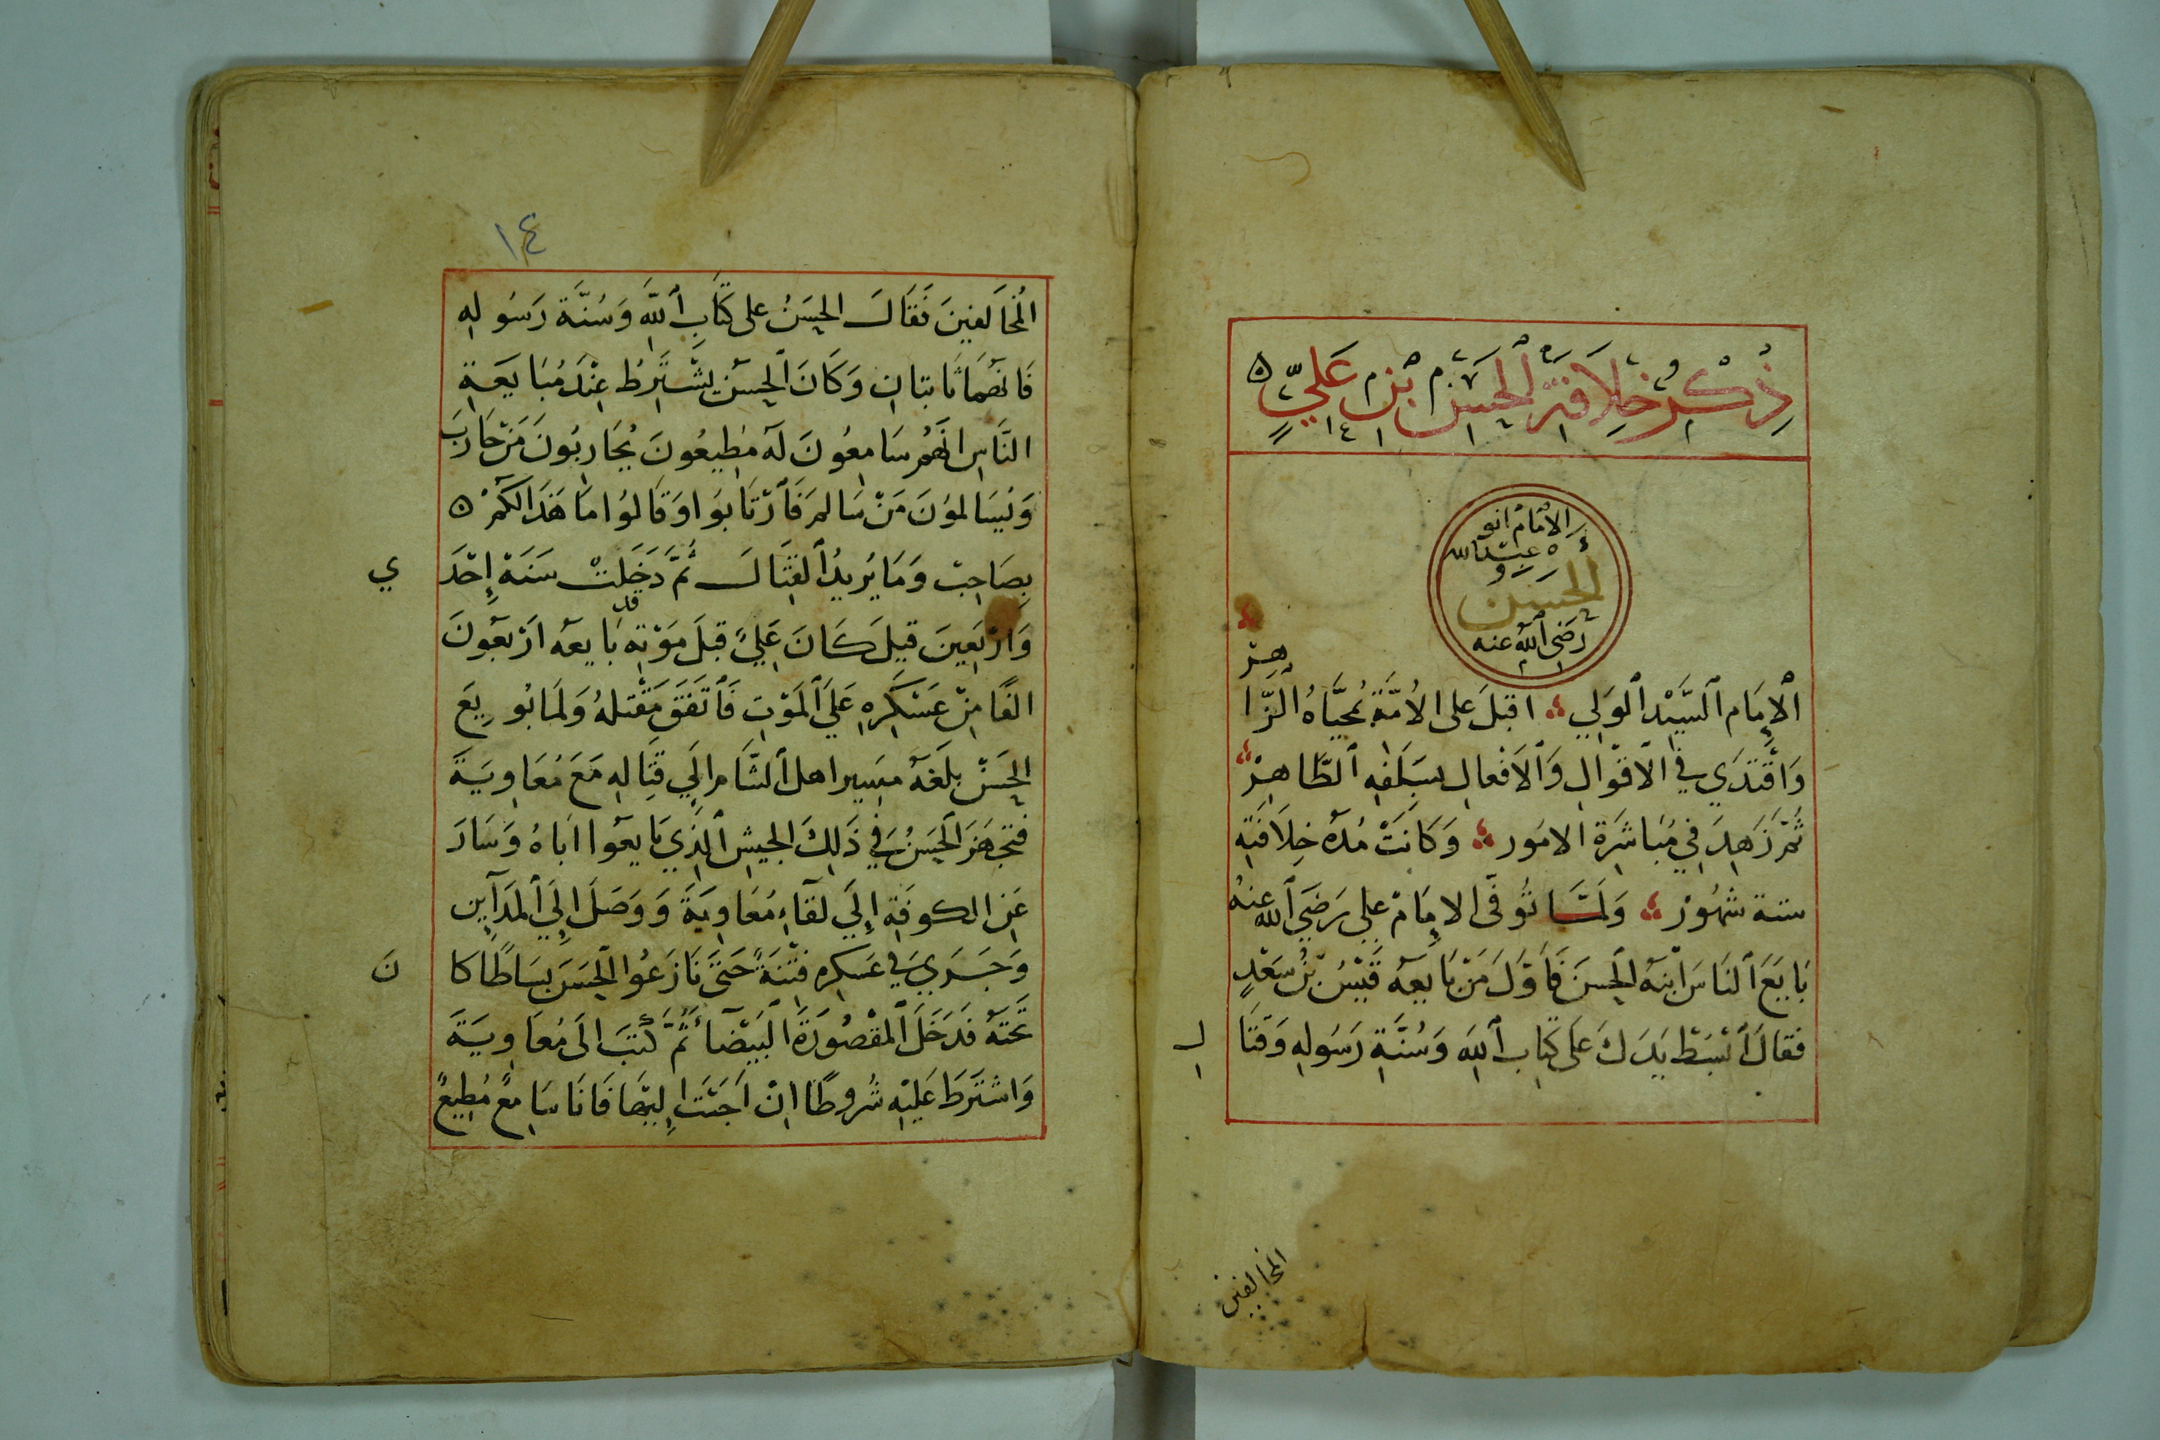 ذِكْرُ خِلَافَةِ الْحَسَنِ بْنِ عَلِيٍّ
الإمام أبو
عبد الله
الحسن
رضي الله عنه
هِرْ
الإِمَام السَّيِّد الوَلي اقبلَ على الأُمَّة بمُحَيَّاهُ الزَّا
وَاقْتَدَي في الأقْوَالِ وَالأفعالِ بسَلَفِهِ الطَّاهِرْ
ثُمَّ زَهِدَ في مُبَاشَرَة الامُور وَكَانَتْ مُدة خِلَافَتِهِ
ستة شهُورْ وَلَمَّا تُوفى الامَامْ علي رَضيَ الله عنهُ
بَايَعَ النَاسَ ابْنهُ الحسنَ فَأوَّلَ مَنْ بَايعهُ قَيْسُ بْنُ سَعْدٍ
فقالَ ابْسُطْ يَدَكَ عَلى كِتابِ اللهِ وَسُنَّةِ رَسُولِهِ وَقتَا
لِ
المخالفين
١٤
المُخَالفينَ فَقَالَ الحسَنُ على كتَابِ اللهِ وَسُنَّة رَسُولِهِ
فَانهُمَا ثَابتانِ وَكَانَ الحسن يَشْتَرِطُ عِنْدَ مُبَايَعَةِ
النَّاسِ انَّهُمْ سَامِعُونَ لَهُ مُطِيعُونَ يُحَارِبُونَ مَنْ حَارَبَ
وَيُسَالمُونَ مَنْ سَالمَ فَارْتَابُوا وَقالُوا مَا هَذَا لكُمْ
بِصَاحِبْ وَمَا يُريدُ القِتَالَ ثُمَّ دَخَلتْ سَنَة إِحْدَ
ي
قد
وَارْبَعِينَ قيلَ كَانَ عَلِيٌ قبلَ مَوْتِهِ بَايعهُ ارْبعُونَ
الفًا مِنْ عَسْكَرِهِ عَلَي المَوْتِ فَاتفَقَ مَقْتلهُ وَلمَا بُويعَ
الحَسَنْ بلَغَهُ مَسِير اهل الشَّام إلَي قِتَالِهِ مَعَ مُعَاوِيَةَ
فتجهزَ الحَسَنُ في ذَلِكَ الجيشِ الذِي بَايعُوا ابَاهُ وَسَارَ
عَنِ الكوفَةِ إلَي لقآءِ مُعَاوِيَةَ وَوَصَلَ إلَي المَدَآينِ
وَجَرَي في عَسكرِهِ فِتْنَةً حَتَّى نَازَعُوا الحَسَنَ بِسَاطًا كا
نَ
تحتَهُ فَدَخَلَ المقْصُورَةَ البَيْضَآ ثُمَّ كَتبَ الَى مُعَاوِيَةَ
وَاشتَرَطَ عَلَيْهِ شُرُوطًا انْ اَجَبْتَ إِلَيْهَا فَانَا سَامِعٌ مُطِيعٌ